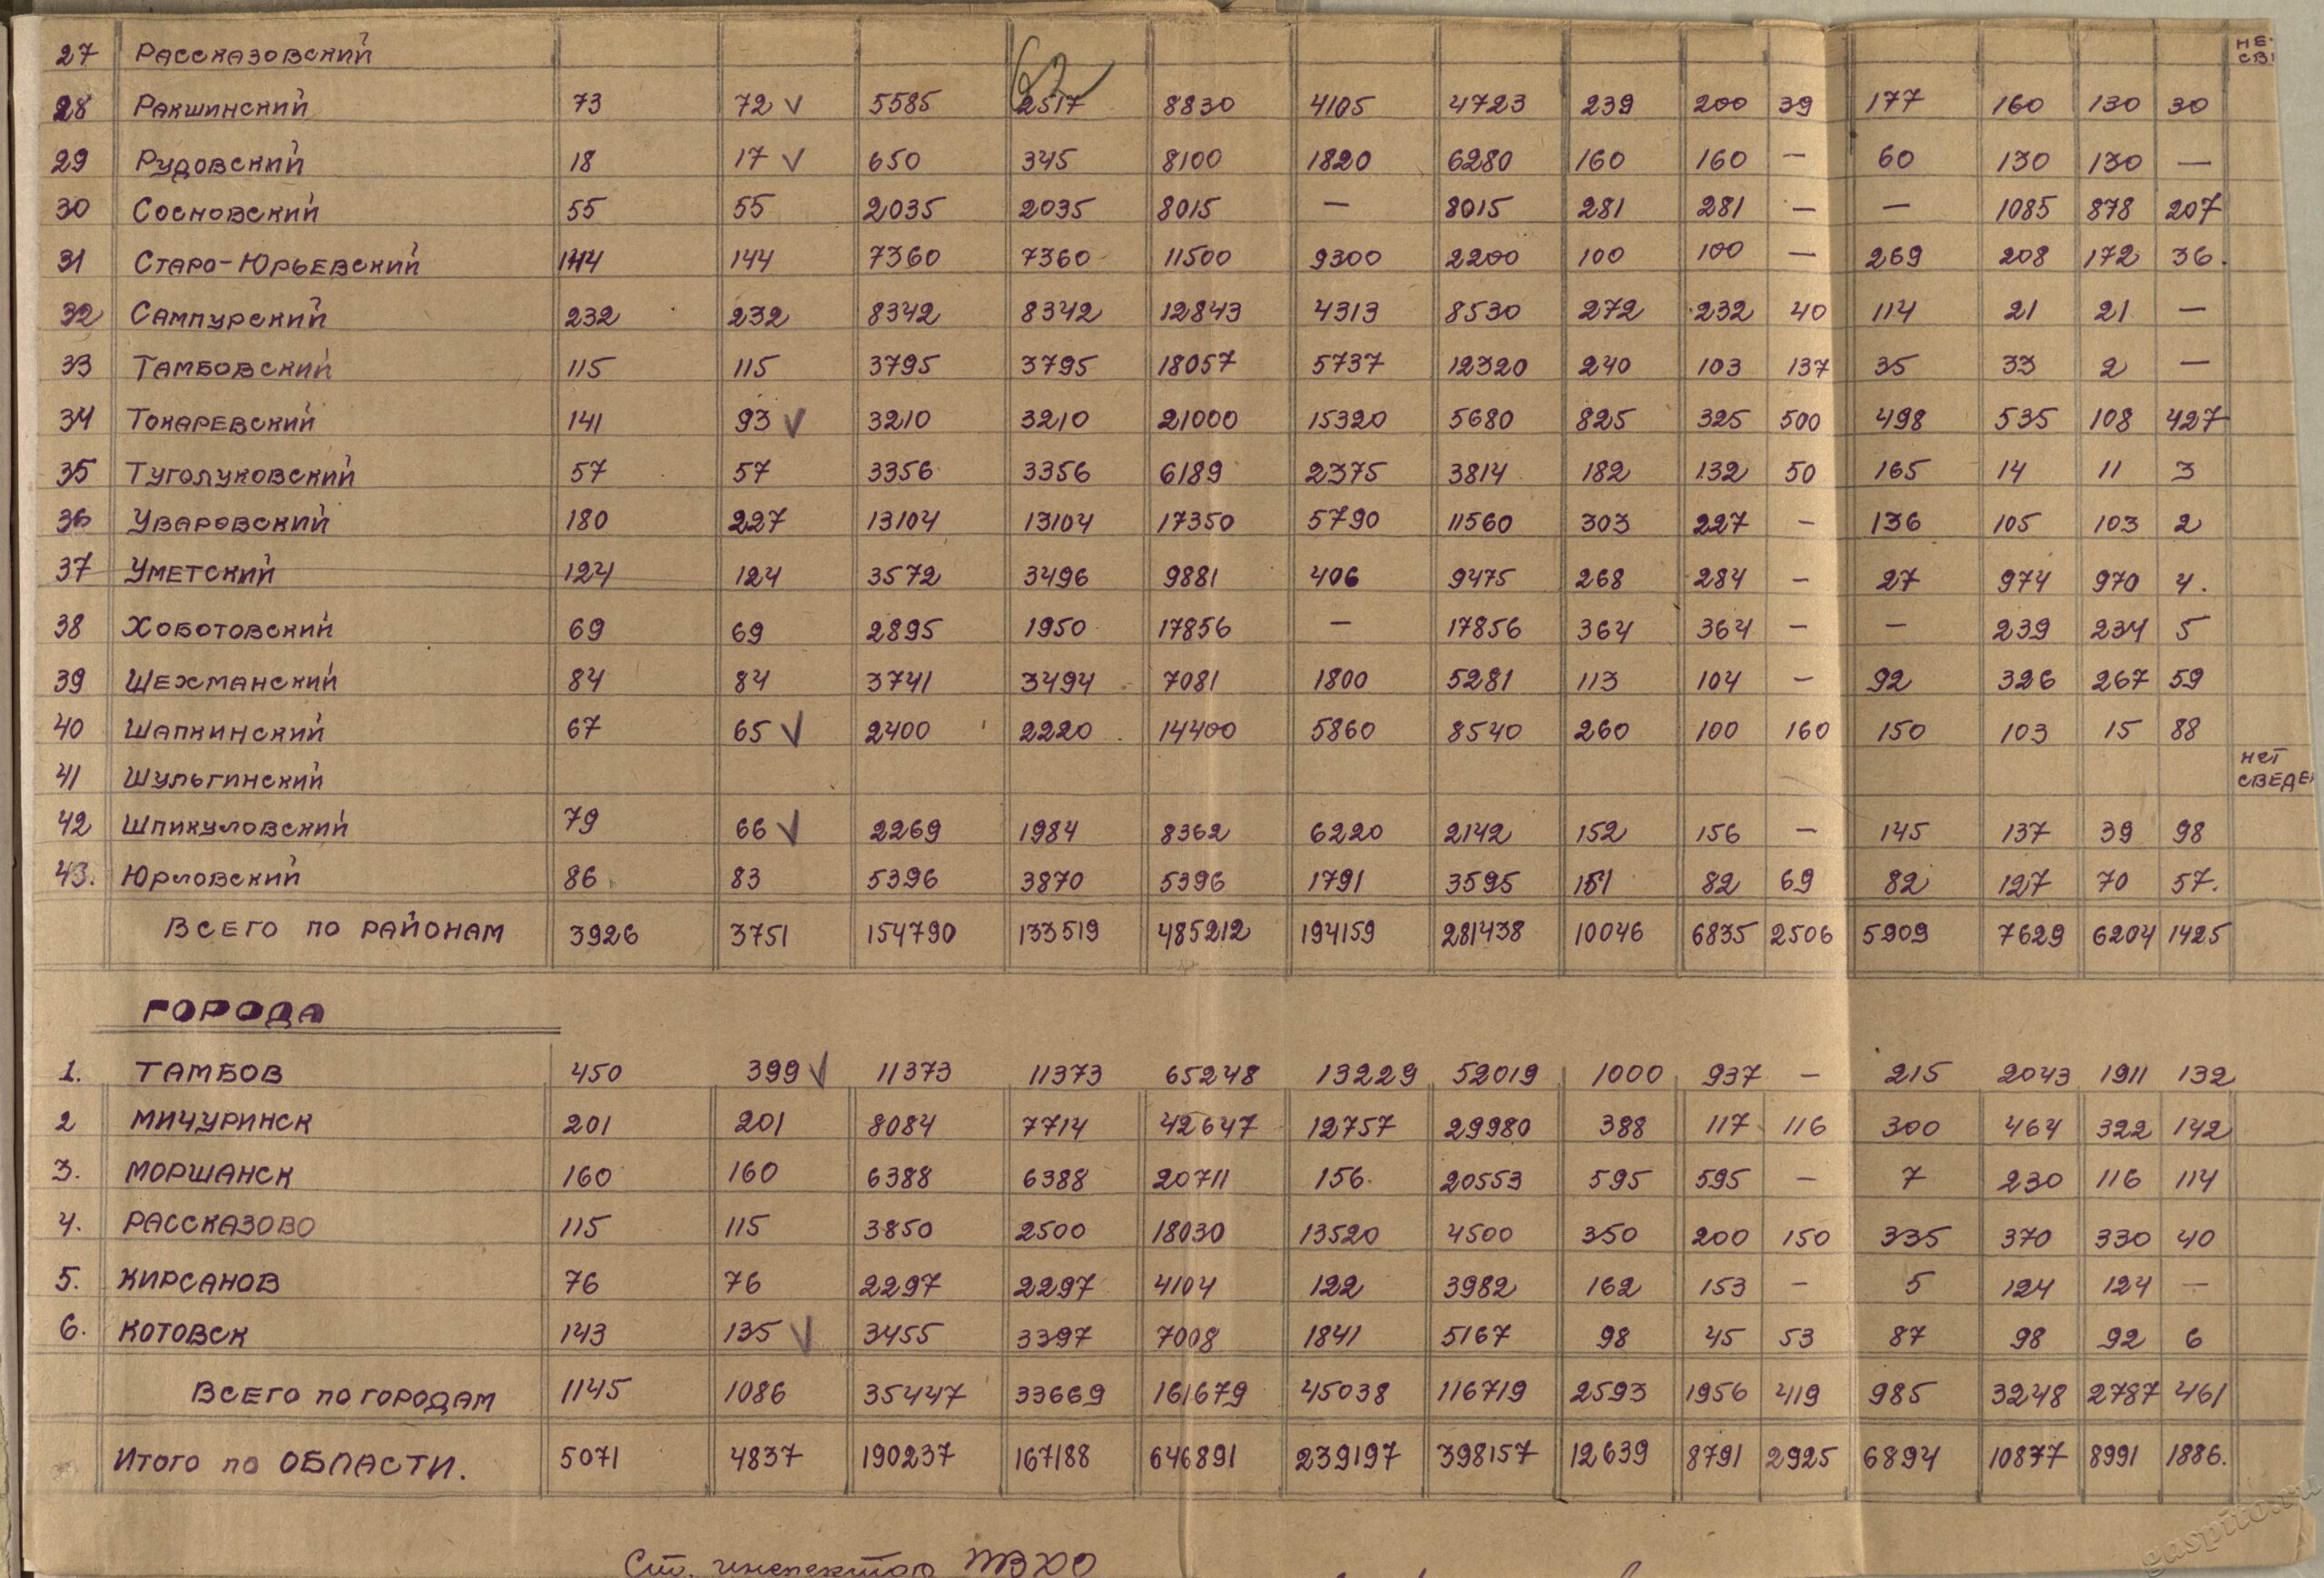 62
27 Рассказовский НЕ СВ
28 Ракшинский 73 72 √ 5585 2517 8830 4105 4723 239 200 39 177 160 130 30
29 Рудовский 18 17 √ 650 345 8100 1820 6280 160 160 — 60 130 130 —
30 Сосновский 55 55 2035 2035 8015 — 8015 281 281 — — 1085 878 207
31 Старо-Юрьевский 144 144 7360 7360 11500 9300 2200 100 100 — 269 208 172 36.
32 Сампурский 232 232 8342 8342 12843 4313 8530 272 232 40 114 21 21 —
33 Тамбовский 115 115 3795 3795 18057 5737 12320 240 103 137 35 33 2 —
34 Токаревский 141 93 √ 3210 3210 21000 15320 5680 825 325 500 498 535 108 427
35 Туголуковский 57 57 3356 3356 6189 2375 3814 182 132 50 165 14 11 3
36 Уваровский 180 227 13104 13104 17350 5790 11560 303 227 — 136 105 103 2
37 Уметский 124 124 3572 3496 9881 406 9475 268 284 — 27 974 970 4.
38 Хоботовский 69 69 2895 1950 17856 — 17856 364 364 — — 239 234 5
39 Шехманский 84 84 3741 3494 7081 1800 5281 113 104 — 92 326 267 59
40 Шапкинский 67 65 √ 2400 2220 14400 5860 8540 260 100 160 150 103 15 88
41 Шульгинский нет сведе
42 Шпикуловский 79 66 √ 2269 1984 8362 6220 2142 152 156 — 145 137 39 98
43. Юрловский 86 83 5396 3870 5396 1791 3595 151 82 69 82 127 70 57.
Всего по районам 3926 3751 154790 133519 485212 194159 281438 10046 6835 2506 5909 7629 6204 1425
ГОРОДА
1. ТАМБОВ 450 399 √ 11373 11373 65248 13229 52019 1000 937 — 215 2043 1911 132
2 МИЧУРИНСК 201 201 8084 7714 42647 12757 29980 388 117 116 300 464 322 142
3. МОРШАНСК 160 160 6388 6388 20711 156 20553 595 595 — 7 230 116 114
4. РАССКАЗОВО 115 115 3850 2500 18030 13520 4500 350 200 150 335 370 330 40
5. КИРСАНОВ 76 76 2297 2297 4104 122 3982 162 153 — 5 124 124 —
6. КОТОВСК 143 135 √ 3455 3397 7008 1841 5167 98 45 53 87 98 92 6
Всего по городам 1145 1086 35447 33669 161679 45038 116719 2593 1956 419 985 3248 2787 461
Итого по ОБЛАСТИ. 5071 4837 190237 167188 646891 239197 398157 12639 8791 2925 6894 10877 8991 1886.
Ст. инспектор ПВХО
gaspito.ru